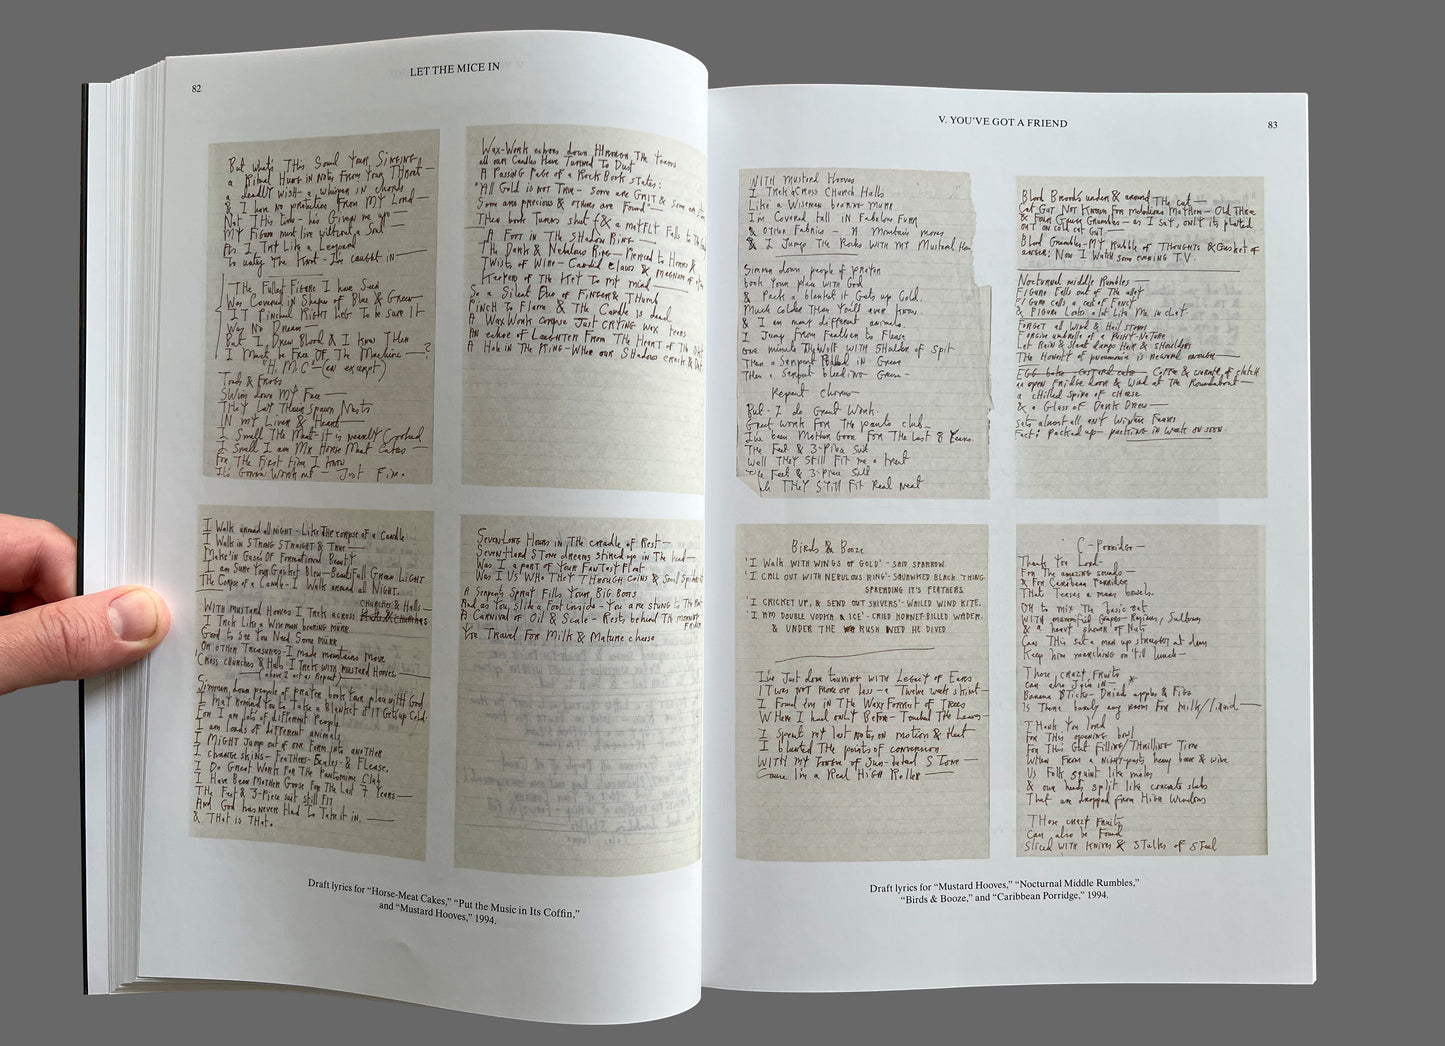 82
LET THE MICE IN
But what's This Soul Your Singing
a Ritual Hung in Notes From Your Throat —
a deadly wish — a whisper in chords
& I have no protection From My Lord —
Not This time — his Given me up —
My Figure must live without a Soul —
As I, Trot Like a Leopard
To untie The Knot — I've caught in —
The Fullest Figure I have Seen
Was Covered in Shapes of Blue & Green
IT Pinched Right Legs To be Sure It
Was No Dream —
But I Drew Blood & I Knew Then
I Must be Free OF The Machine — ?
"H.M.C — (an excerpt)
Toads & Frogs
Swing down My Face —
They Let Their Spawn Nests
IN my Liver & Heart —
I Smell The Meat — it is nearly Cooked
I Smell I am Mr Horse Meat Cakes —
For The First time I know
It's Gonna Work out — Just Fine.
Wax-Work echoes down Through The Years
all our Candles Have Turned To Dust
A Passing Page of a Rock Book states:
"All Gold is not True — Some are Grit & some are
Some are precious & others are Found" —
Then book Turns shut & a mayfly Falls To The
A Foot in The Shadow Ring —
The Dark & Nebulous Ring — Pierced to Horns &
Twists of Wine — Candid Claws & Magnum of
Keepers of The Key To my mind —
So a Silent Duo of Finger & Thumb
Pinch To Flame & The Candle is dead
A Waxwork corpse Just crying wax tears
An echo of Laughter From The Heart of The
A Hole in The Ring — When our Shadows crack &
I Walk around all night — Like The corpse of a Candle
I Walk in Strong Straight & True —
Make in Gases Of Formational Beauty
I am Sure Your Gasket Blew — Beautifull Green Light
The Corpse of a Candle — I Walk around all Night.
With mustard Hooves I Trek across Churches & Halls —
I Trek Like a Wiseman bearing mûre
Good to see You Need Some mûre
On other Treasures — I made mountains Move
'Cross churches & Halls I Trek with mustard Hooves. —
(above 2 act as Repeat)
Simmer down people of prayer book Your place with God
I may Remind You To Take a Blanket — IT Gets up Cold.
For I am lots of different People
I am loads of different animals
I Might Jump out of one Form into another
I change skins — Feathers — Scales — & Fleece.
I Do Great Work For The Pantomime Club
I Have Been Mother Goose For The Last 7 Years —
The Feet & 3-Piece suit still Fit
And God has never Had To Take it in. —
& That is That.
Seven Long Hours in The cradle of Rest —
Seven Hard Stone dreams stirred up in The head —
Was I a part of Your Fantasy Float
Was I Us Who They Through coins &
A Serpents Spray Fills Your Big Boots
And as You, Slide a Foot inside — You are stung to The
A Carnival of Oil & Scale — Rests behind The
You Travel For Milk & Mature cheese
Draft lyrics for “Horse-Meat Cakes,” “Put the Music in Its Coffin,”
and “Mustard Hooves,” 1994.
V. YOU'VE GOT A FRIEND
83
With mustard Hooves
I Trek across Church Halls
Like a Wiseman bearing mûre
I'm Covered tall in Fabulous Furr
& other Fabrics — A Mountain moves
& I Jump The Rocks With my Mustard
Simmer down people of prayer
book Your place with God
& Pack a blanket it Gets up Cold.
Much colder Than You'll ever know.
& I am many different animals.
I Jump From Feather to Fleece
one minute The Wolf With Shoulder of Spit
Then a Serpent Robbed in Green
Then a Serpent bleeding Green —
Repeat chorus
But — I do Great Work
Great work For The panto club —
I've been Mother Goose For The Last 8 Years.
The Feet & 3-Piece Suit
Well They Still Fit me a treat
The Feet & 3-Piece Suit
They Still Fit Real Neat
Blood Broods under & around The Cat —
Cat Gut Not Known For melodious Mayhem — Old Three
& Four Guess Grumbles — as I say, only its plated
out on cold cat Gut —
Blood Grumbles — My Rubble of Thoughts & Gasket of
answer: Now I Watch some evening T.V.
Nocturnal middle Rumbles —
Figure Falls out of The alley
Figure calls a cast of Fancy
& Figure Looks a lot Like Me in clay.
Forget all Wind & Hail storms
Let Rain & Sleet damp Hair & Shoulders
The Honesty of pneumonia is reward enough —
an open Fridge door & Wind at The Roundabout —
a chilled Spine of cheese
& a Glass of Dark Drew —
Sets almost all any Winter Fears
Fact: packed up — packing in Week or soon.
Birds & Booze
'I Walk With Wings of Gold' — said Sparrow.
'I Call out with Nerulous Ring' — Squawked Black Thing
Spreading it's Feathers.
'I Cricket up, & send out shivers' — Wailed Wind Kite.
'I am double vodka & ice' — cried Hornet-billed Wader.
& under the Rush Weed he dived
I've Just done turning with Legacy of Ears
IT was not more or less — a Twelve week stint —
I Found em in The Waxy Forest of Trees
Where I had only Before — Touched The Leaves —
I Spent my last Notes on motion & Heat
I blunted The points of conversion
With my Tongue of Sun-baked Stone —
Cause I'm a Real High Roller —
C — Porridge —
Thank You Lord —
For The amazing sounds —
& For Caribean Porridge
That Teases a mans bowels.
Oh to mix The basic oat
With mournful Grapes — Raisins, Sultanas
& a heavy shower of Nuts
Can This set a man up straight at dawn
Keep him marching on 'till lunch —
Those crazy Fruits
can also Join in —
Banana Sticks — Dried apples & Figs
Is There barely any room For milk/liquid —
Thank You Lord
For This opening bowl
For This Gut Filling/Thrilling Time
When From a Night-past, heavy beer & wine
Us Folk squint like moles
& our heads split like concrete slabs
That are dropped From High Windows
Those crazy Fruits
Can also be Found
Sliced With Knives & Stalks of Steel
Draft lyrics for “Mustard Hooves,” “Nocturnal Middle Rumbles,”
“Birds & Booze,” and “Caribbean Porridge,” 1994.